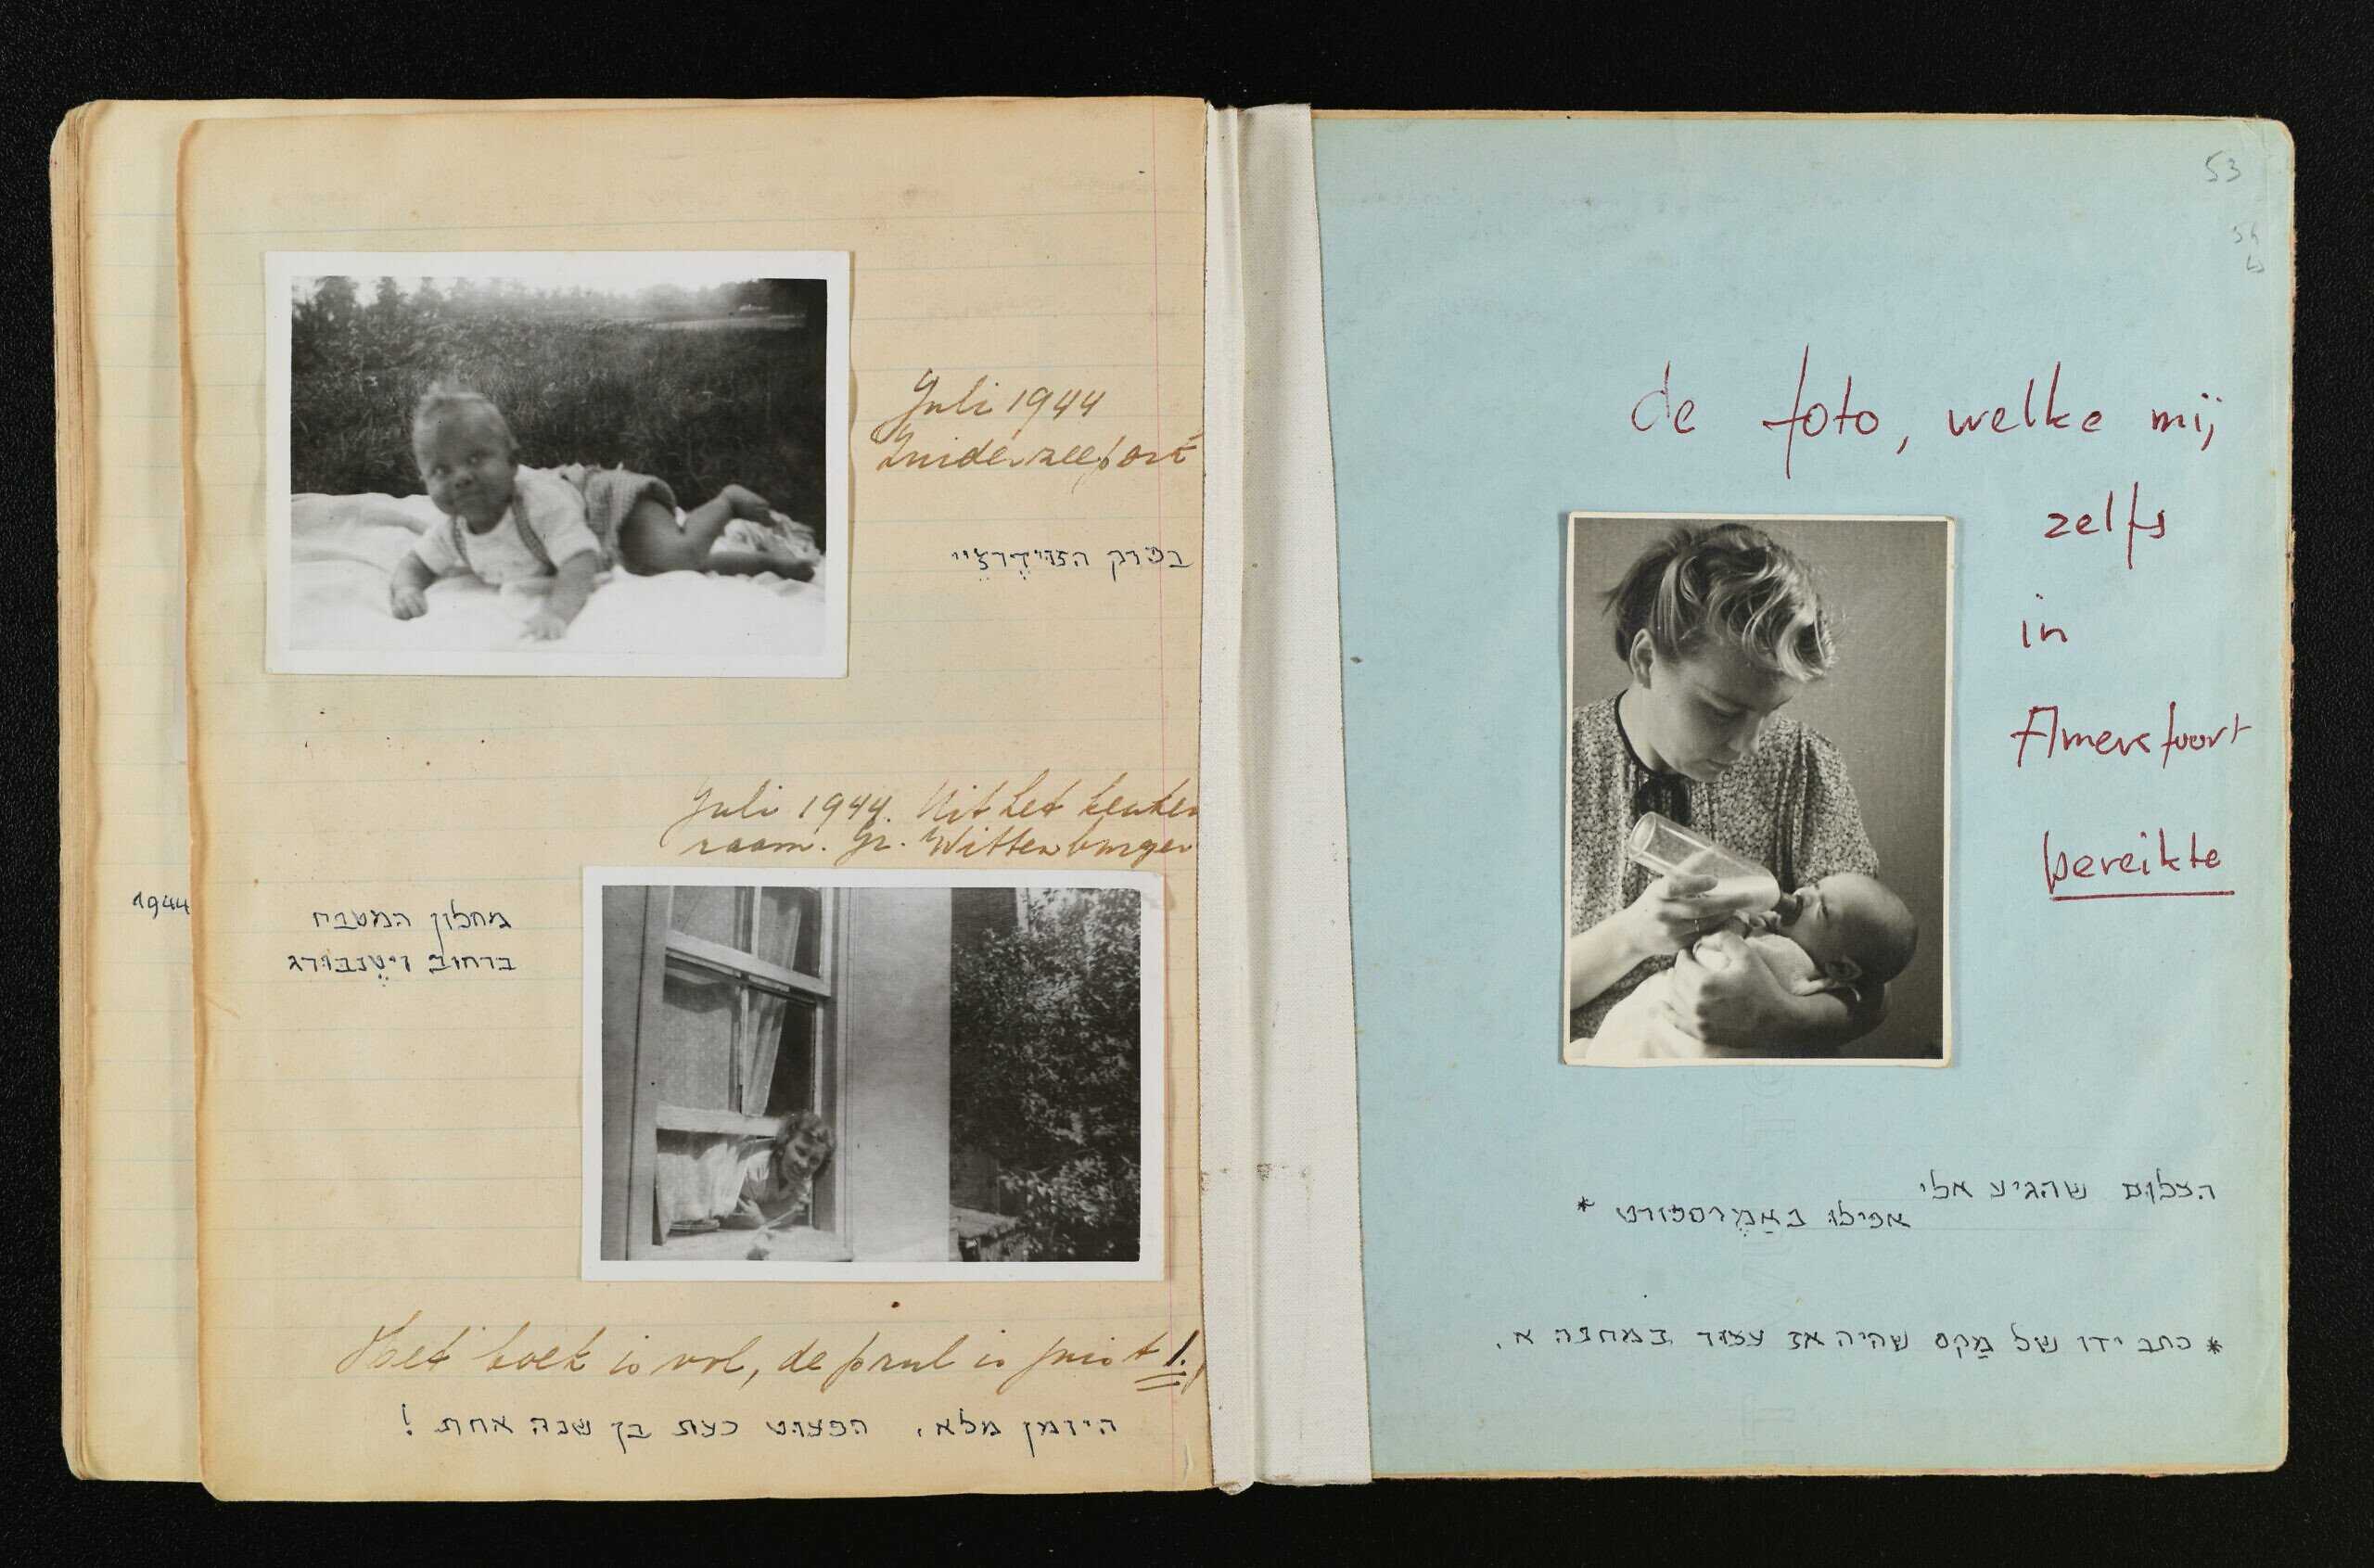 Juli 1944
Zuiderzeepark
בפרק הזוידֶרזֶיי
Juli 1944. Uit het keuken
raam. Gr. Wittenburger
1944
מחלון המטבח
ברחוב ויטֶנבורג
Het boek is vol, de prul is juist 1.
היומן מלא, הפעוט כעת בן שנה אחת !
53
de foto, welke mij
zelfs
in
Amersfoort
bereikte
הצלום שהגיע אלי
אפילו באַמֶרספורט *
* כתב ידו של מַקס שהיה אז עצור במחנה א.